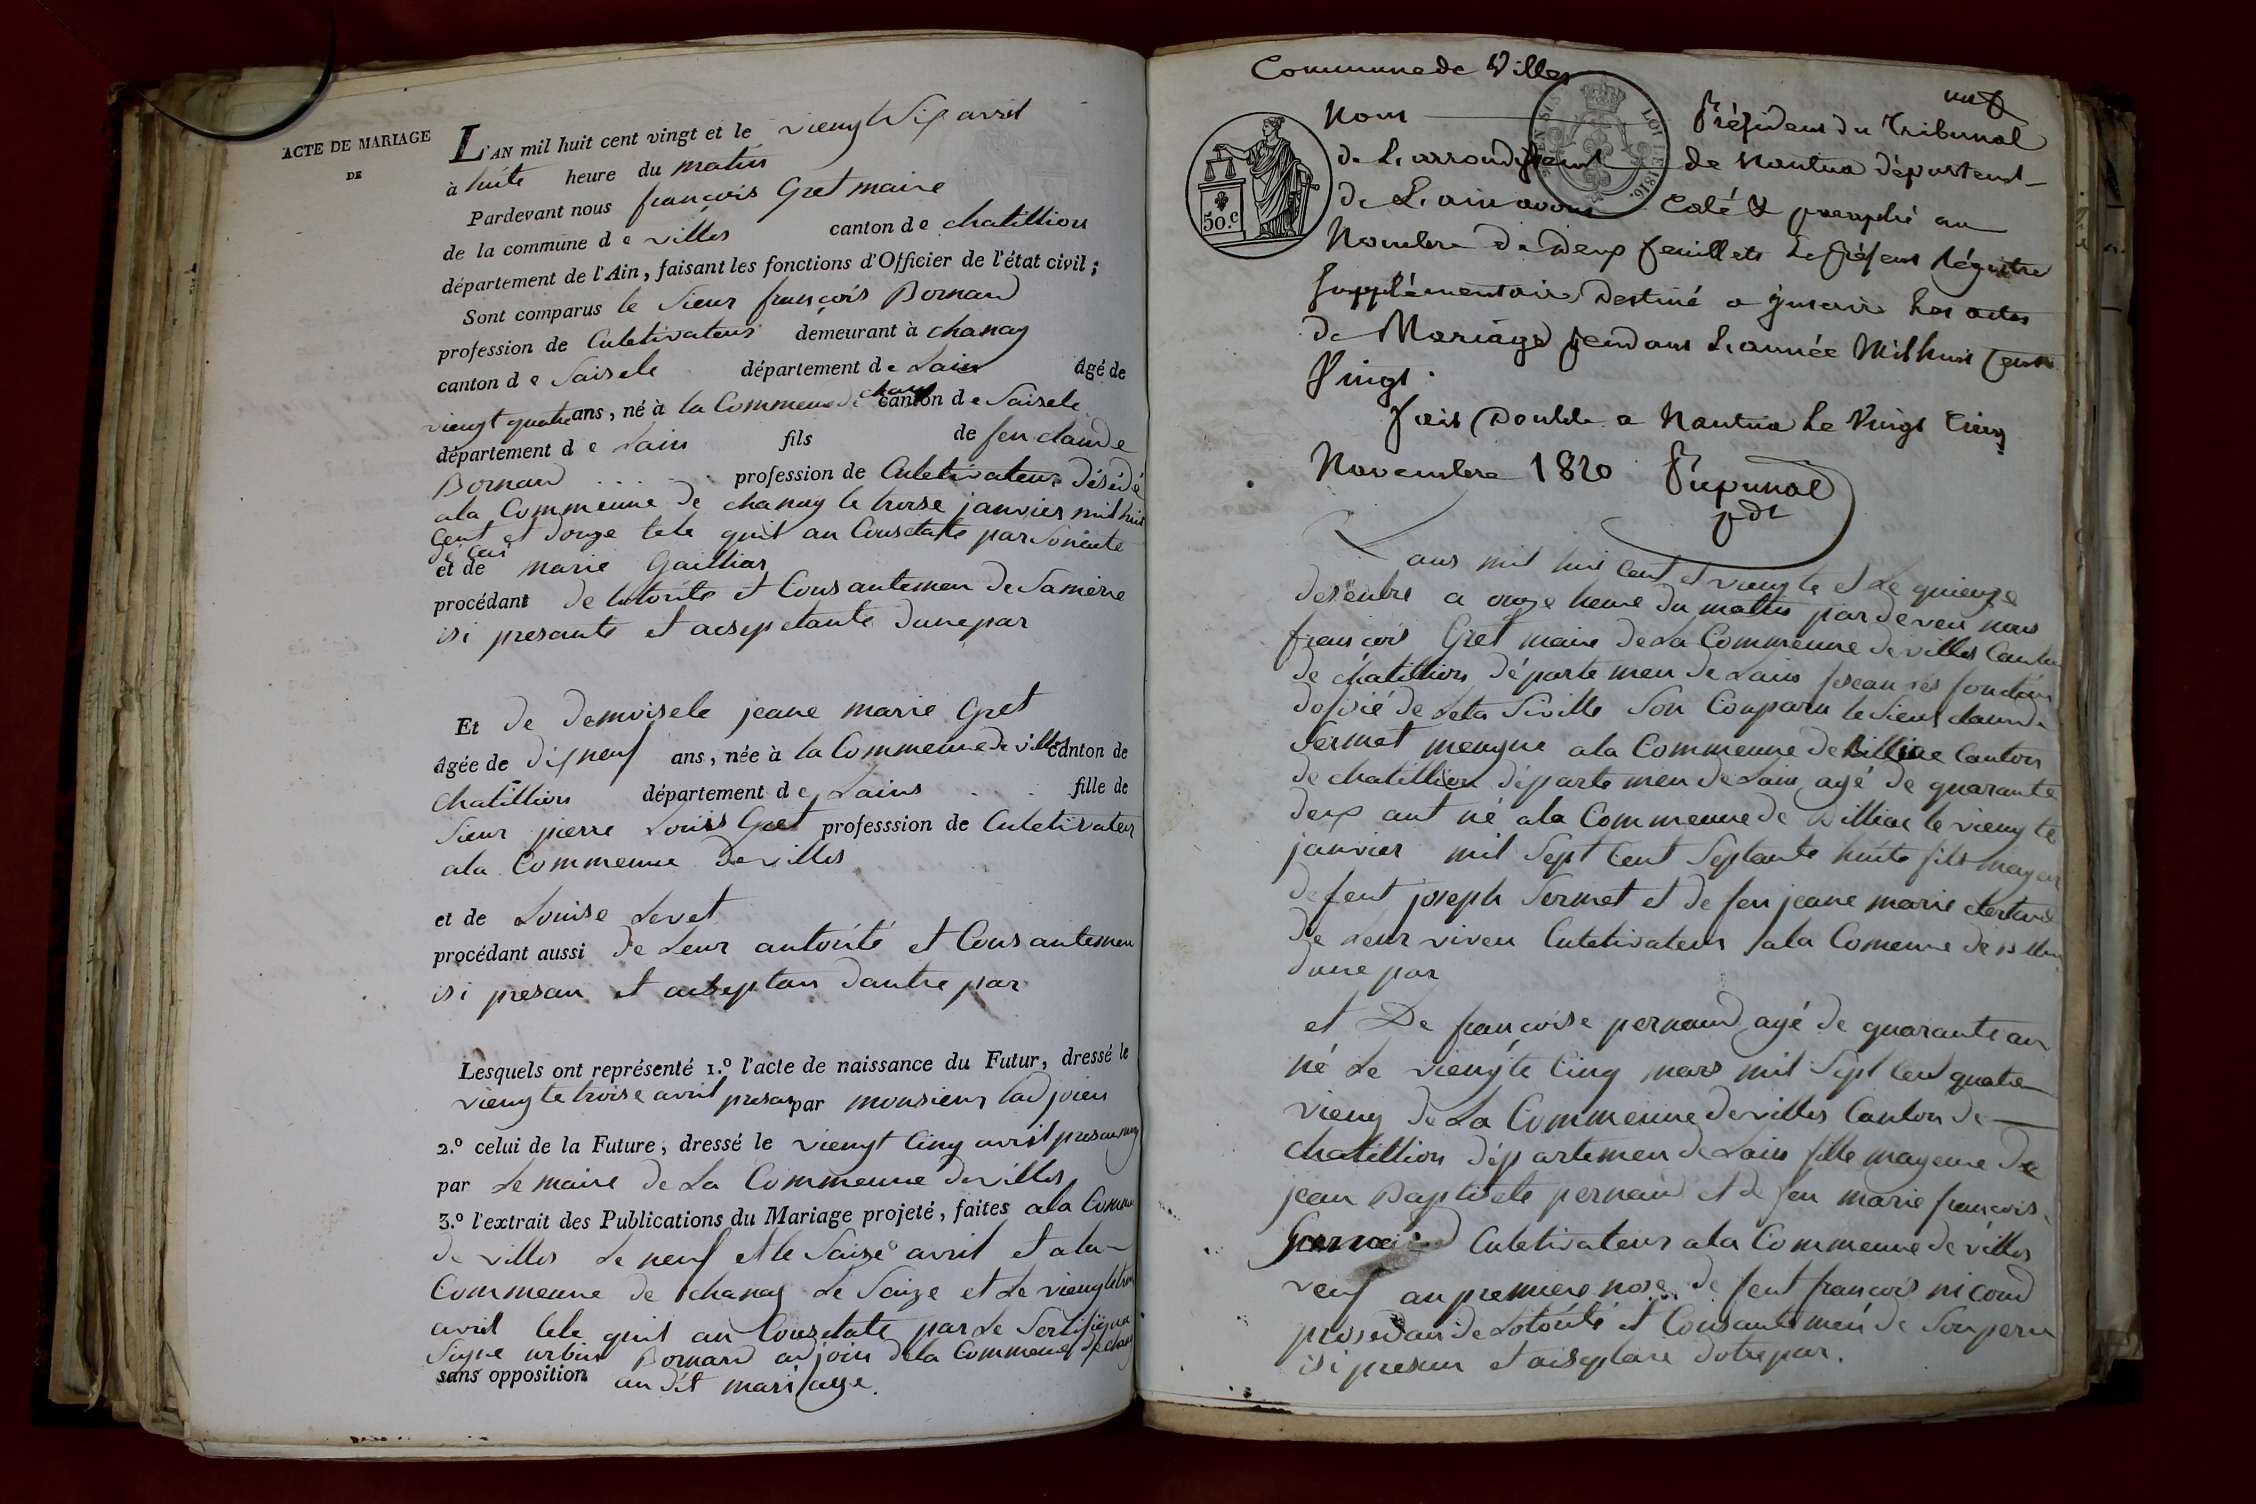 ACTE DE MARIAGE
DE
L'AN mil huit cent vingt et le viengt six avril
à huite heure du matin
Pardevant nous françois Gret maire
de la commune d e villes canton de chatillion
département de l'Ain, faisant les fonctions d'Officier de l'état civil;
Sont comparus le Sieur françois Bornard
profession de Culetivateur demeurant à chanay
canton d e Saisele département d e Lain âgé de
viengt quatre ans, né à la Commeune de chanay canton d e Saisele
département d e Lain fils de feu claude
Bornard profession de Culetivateur déséde
ala Commeune de chanay le troise janvier mil huit
Cent et douze tele quil au Consetate par
et de marie Gaillias
procédant de lotorite et Consantemen de Samere
isi presante et acsepetante dunepar
Et de demoisele jeane marie Gret
âgée de dix neuf ans, née à la Commeune de villes canton de
Chatillion département d e Lain fille de
Sieur pierre Louis Gret professsion de Culetivateur
ala Commeune de villes
et de Louise Levet
procédant aussi de Leur autorité et Consantemen
isi presan et acseptan dautre par
Lesquels ont représenté 1.º l'acte de naissance du Futur, dressé le
viengte troise avril presan par monsieur ladjoien
2.º celui de la Future, dressé le viengt Cinq avril presan
par Le maire de La Commeune de villes
3.º l'extrait des Publications du Mariage projeté, faites ala Comune
de villes Le neuf et le Saize avril et ala
Commeune de chanay Le Saize et Le viengt troi
avril tele quil au Consetate par Le Sertifiqua
Signe urbin Bornard adjoin dela Commeune de chanay
sans opposition au dit mariage.
Commune de Villes
Nous Président du Tribunal
de L'arrondissement de Nantua département
de L'ain avons Coté & paraphé au
Nombre de deux feuillets Le présent Régistre
supplémentaire Destiné a ynscrire Les actes
de Mariage pendant L'année Mil huit Cent
Vingt.
fait Double a Nantua Le Vingt Cinq
Novembre 1820
pdt
50.c
LOI DE 1816.
Lans mil huit Cent et viengte et Le quienze
desenbre a onze heure du matin par deven nous
françois Gret maire de La Commeune de villes Canton
de chatillion département de Lain fesan les fontion
dofisié de Leta Siville Son Conparu le Sieur claude
Sermet ala Commeune de Billiae Canton
de chatillion départemen de Lain agé de quarante
deux ant né ala Commeune de Billiae le viengte
janvier mil Sept Cent Septante huite fils mageur
de feut joseph Sermet et de feu jeane marie
de Leur viven Culetivateur ala Comeune de
dune par
et De françoise pernoud agé de quarante an
né Le viengte Cinq mars mil Sept Cent quatre
vieng de La Commeune de villes Canton de
chatillion départemen de Lain fille mageure de
jean Baptiste pernoud et de feu marie françoise
Culetivateur ala Commeune de villes
veuf au premiere nose de feut françois nicoud
prosedan de Lotorité et Consantemen de Son pere
isi presan et aiseptan dotrepar.